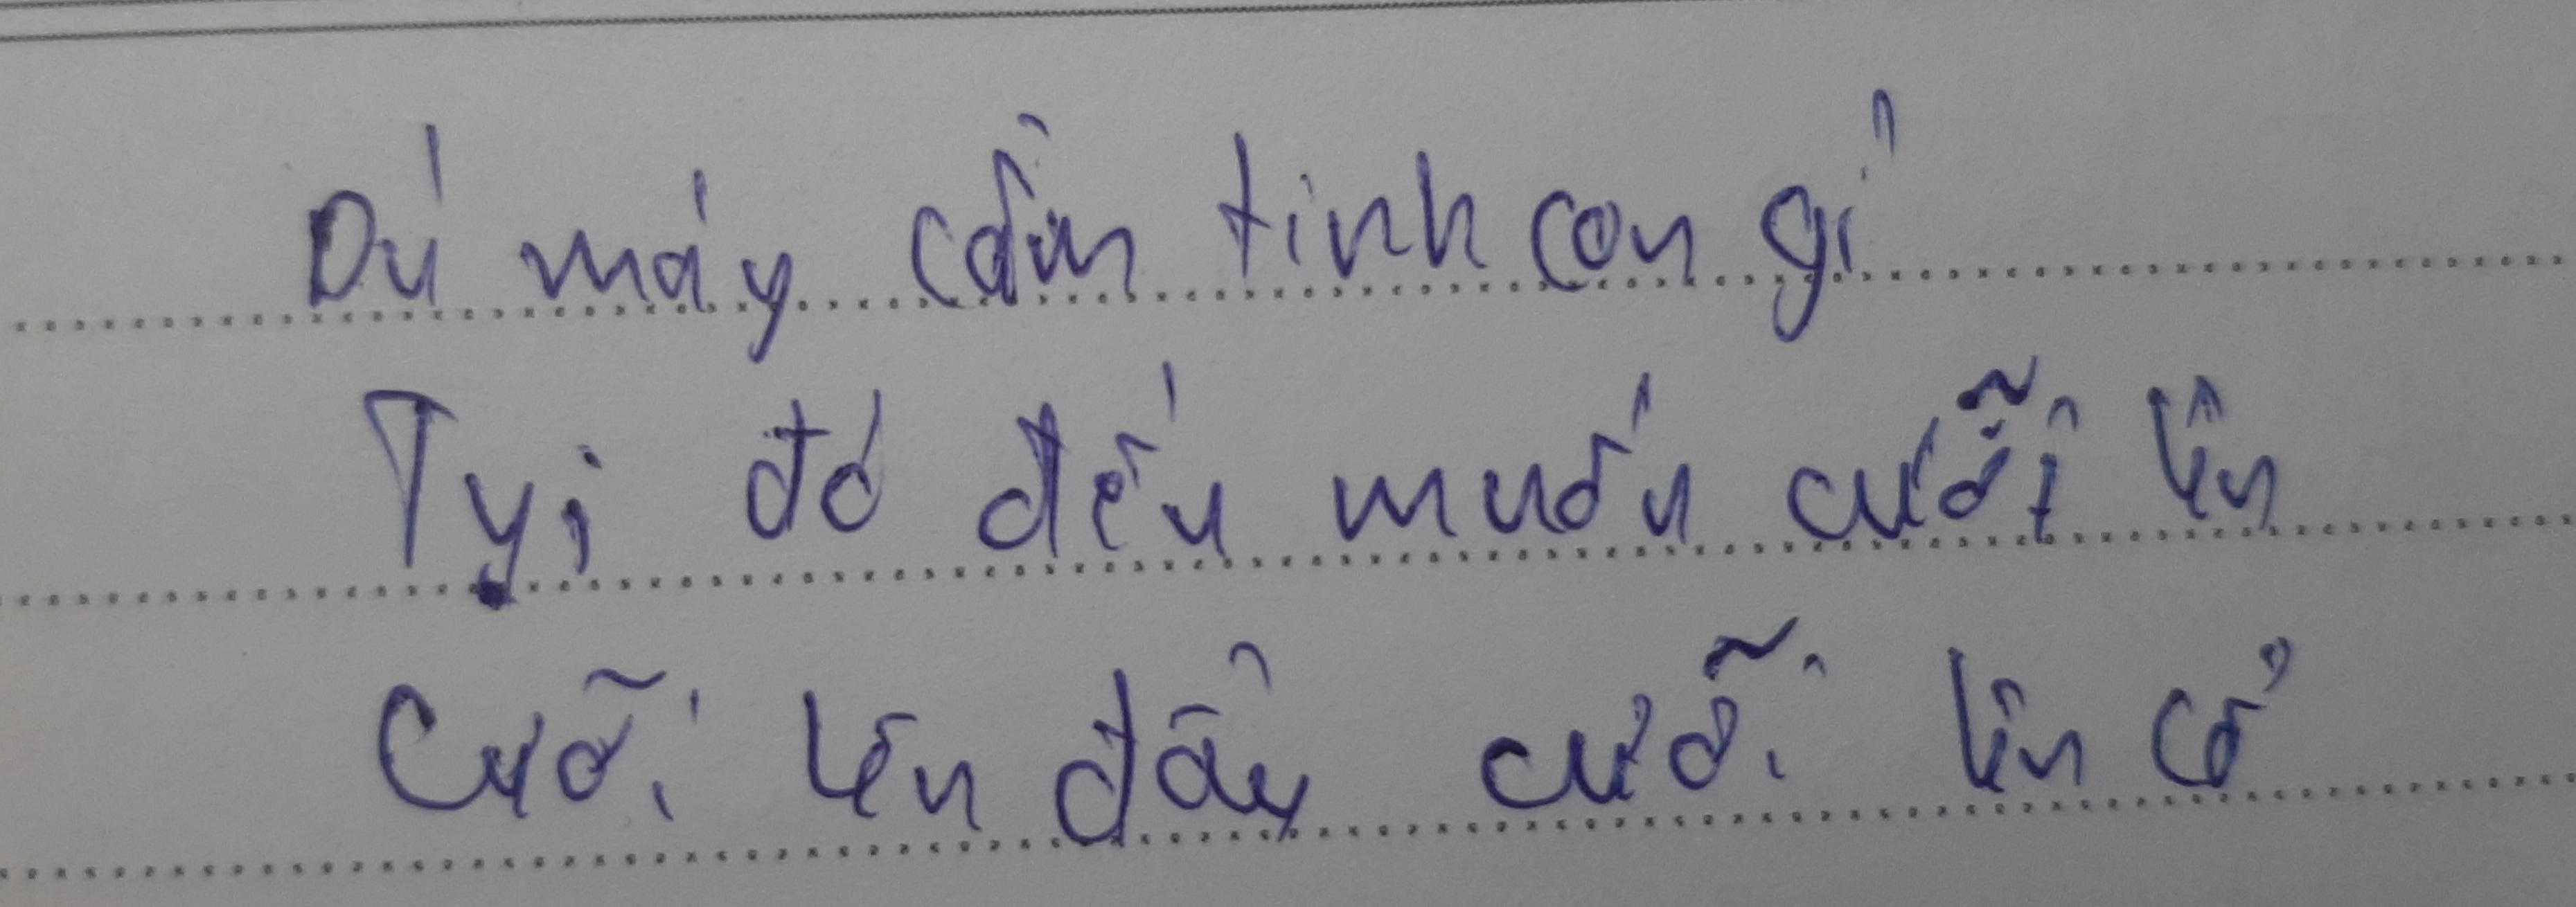 Dù mày cầm tinh con gì
Tụi đó đều muốn cưỡi lên
Cưỡi lên đầu cưỡi lên cổ